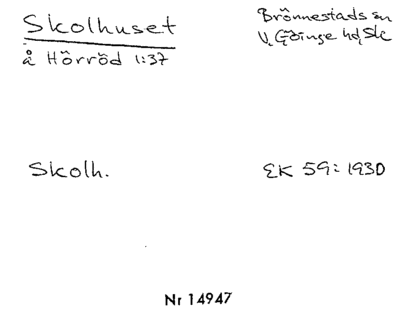 Skolhuset
å Hörröd 1:37
Brönnestads sn
V. Göinge hd, Sk
Skolh.
EK 59: 1930
Nr 14947